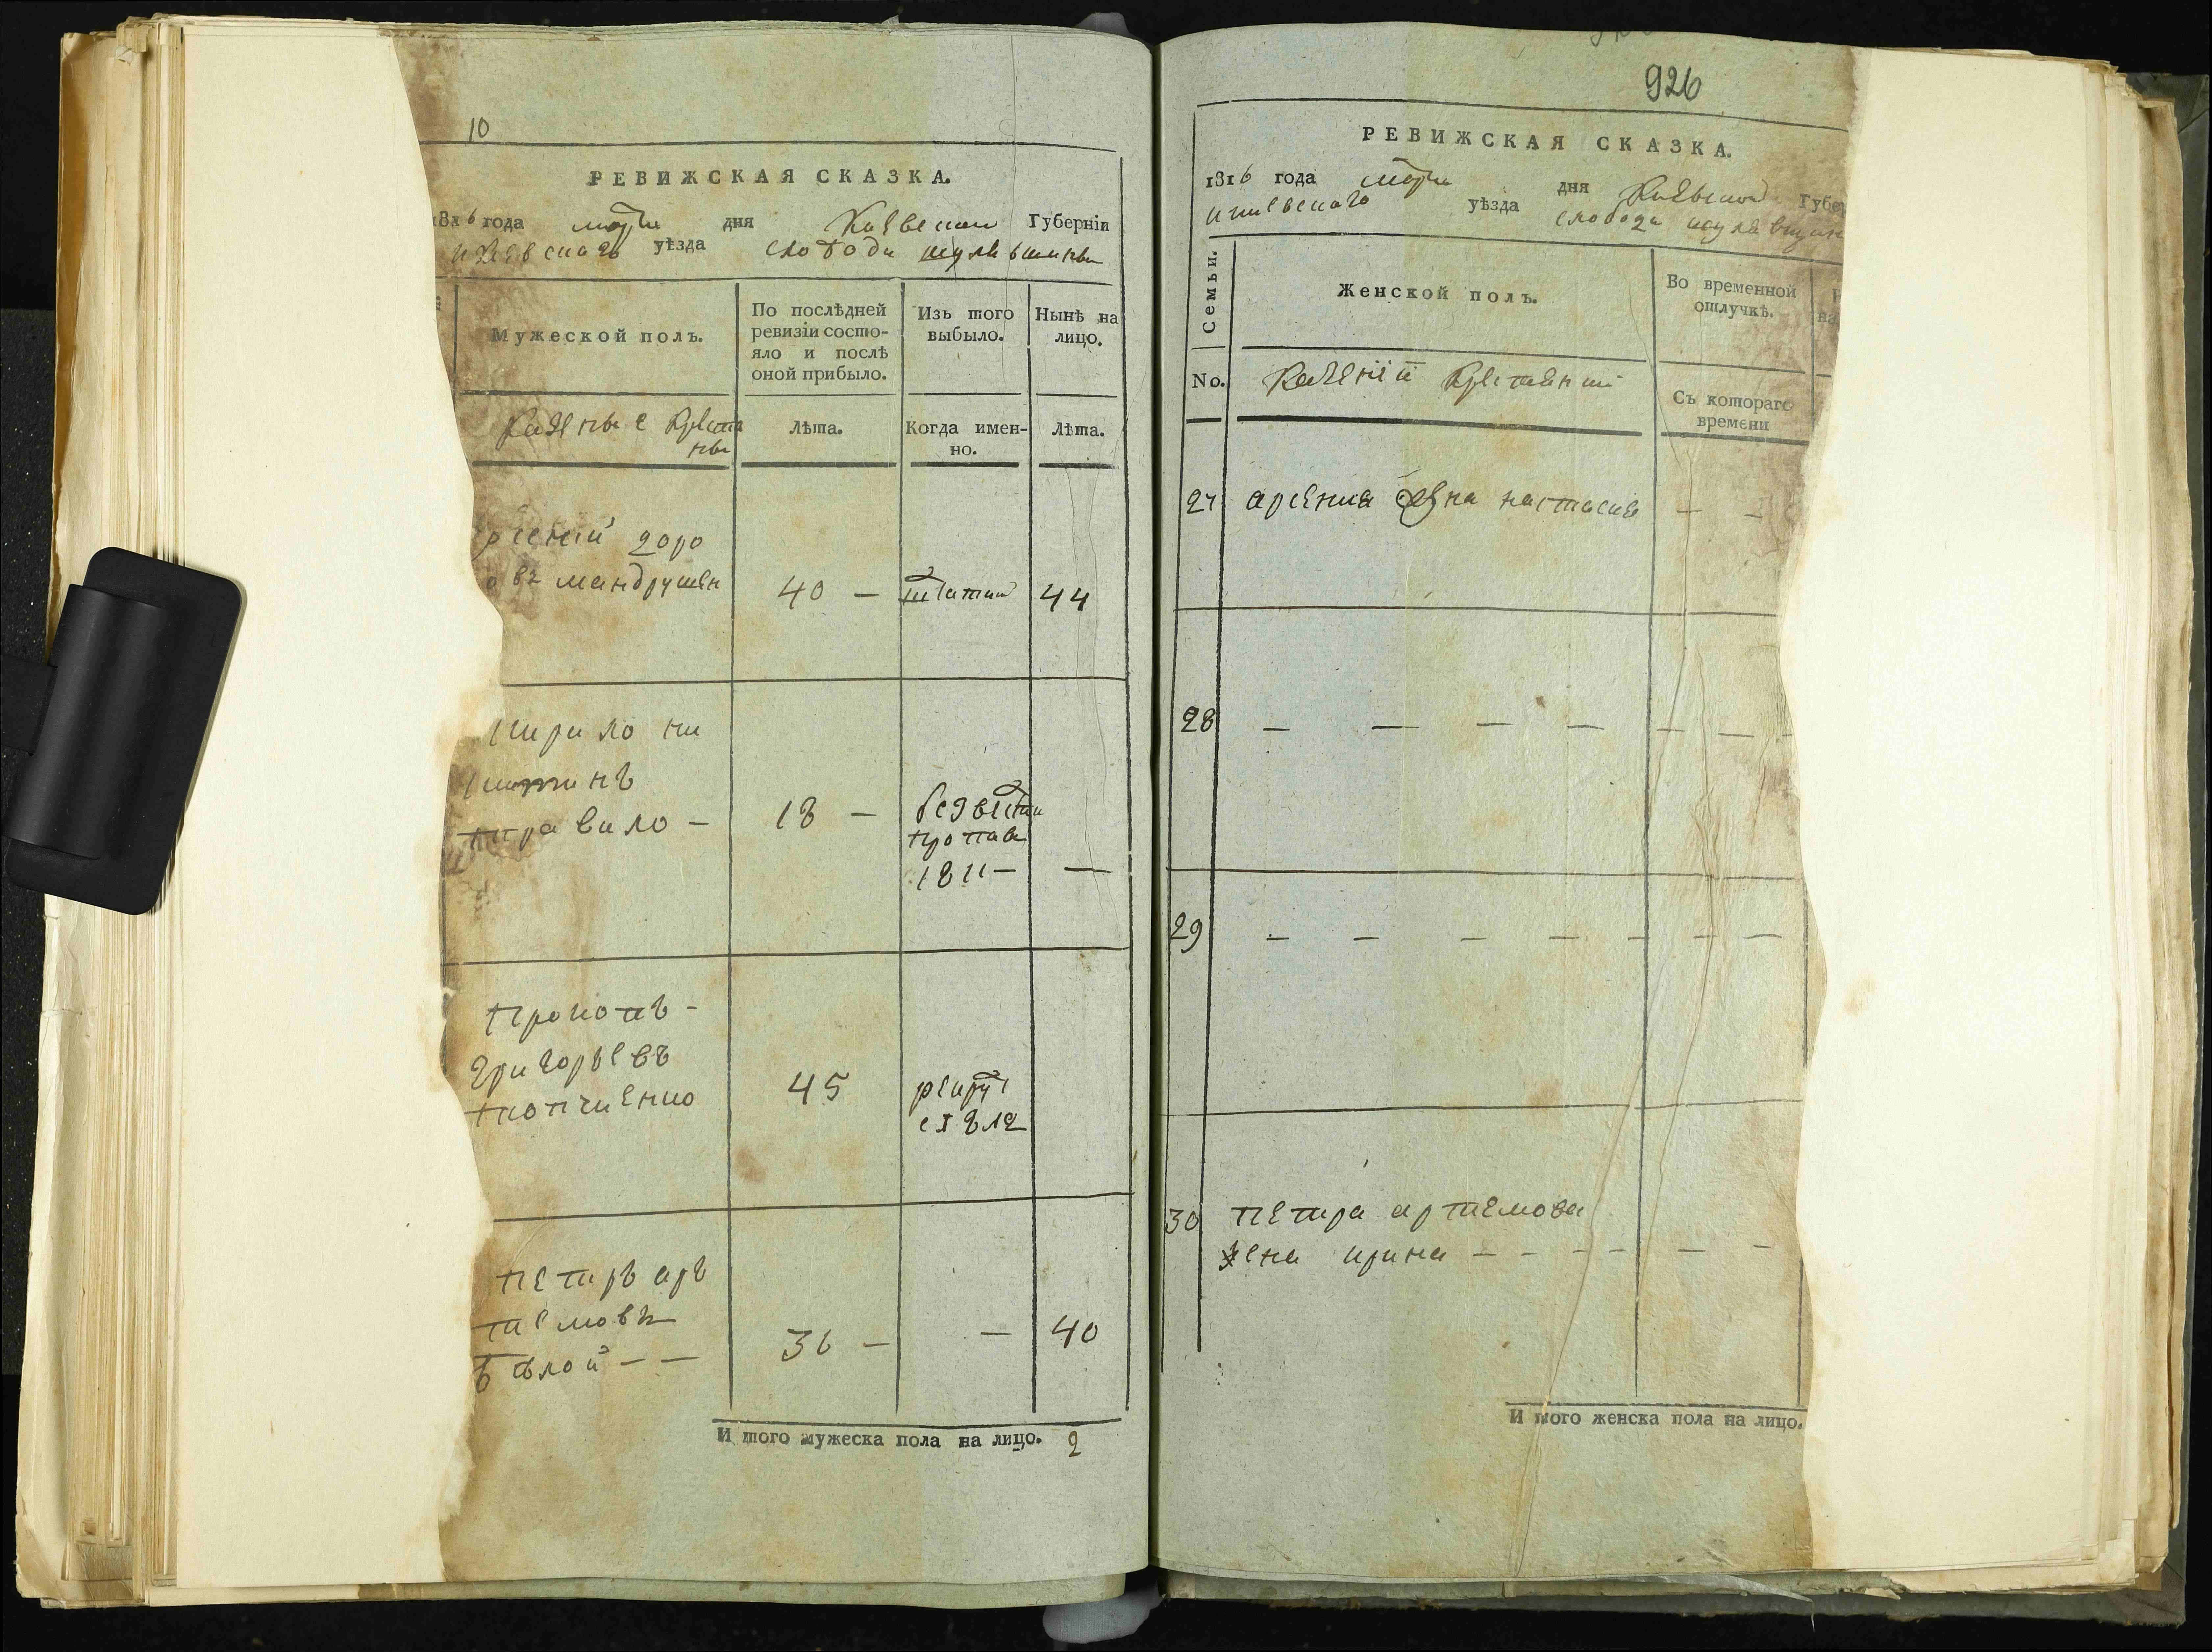 10
РЕВИЖСКАЯ СКАЗКА.
1816 года марта дня Киевской Губернiи
Киевскаго уѣзда слободы шулявщины
Мужеской полъ.
По послѣдней ревизiи состояло и послѣ оной прибыло.
Изъ того выбыло.
Нынѣ на лицо.
казеные крестя
ны
Лѣта.
Когда именно.
Лѣта.
рсенiй доро
овъ мандрушен
40 —
44
кирило ни
китинъ
правило —
18 —
безвести
пропав
1811 —
—
Прокопъ —
григорьевъ
45
рекрут
петръ аръ
темовъ
бѣлой — —
36 —
—
40
И того мужеска пола на лицо. 2
926
РЕВИЖСКАЯ СКАЗКА.
1816 года марта дня Киевской Губер
Киевскаго уѣзда слободы шулявщин
Семьи.
Женской полъ.
Во временной отлучкѣ.
No.
казенiи крестянки
Съ котораго времени
27 арсения жена настасия — —
28 — — — — — — —
29 — — — — — — —
30 петра артемова
жена ирина — — — — — —
И того женска пола на лицо.